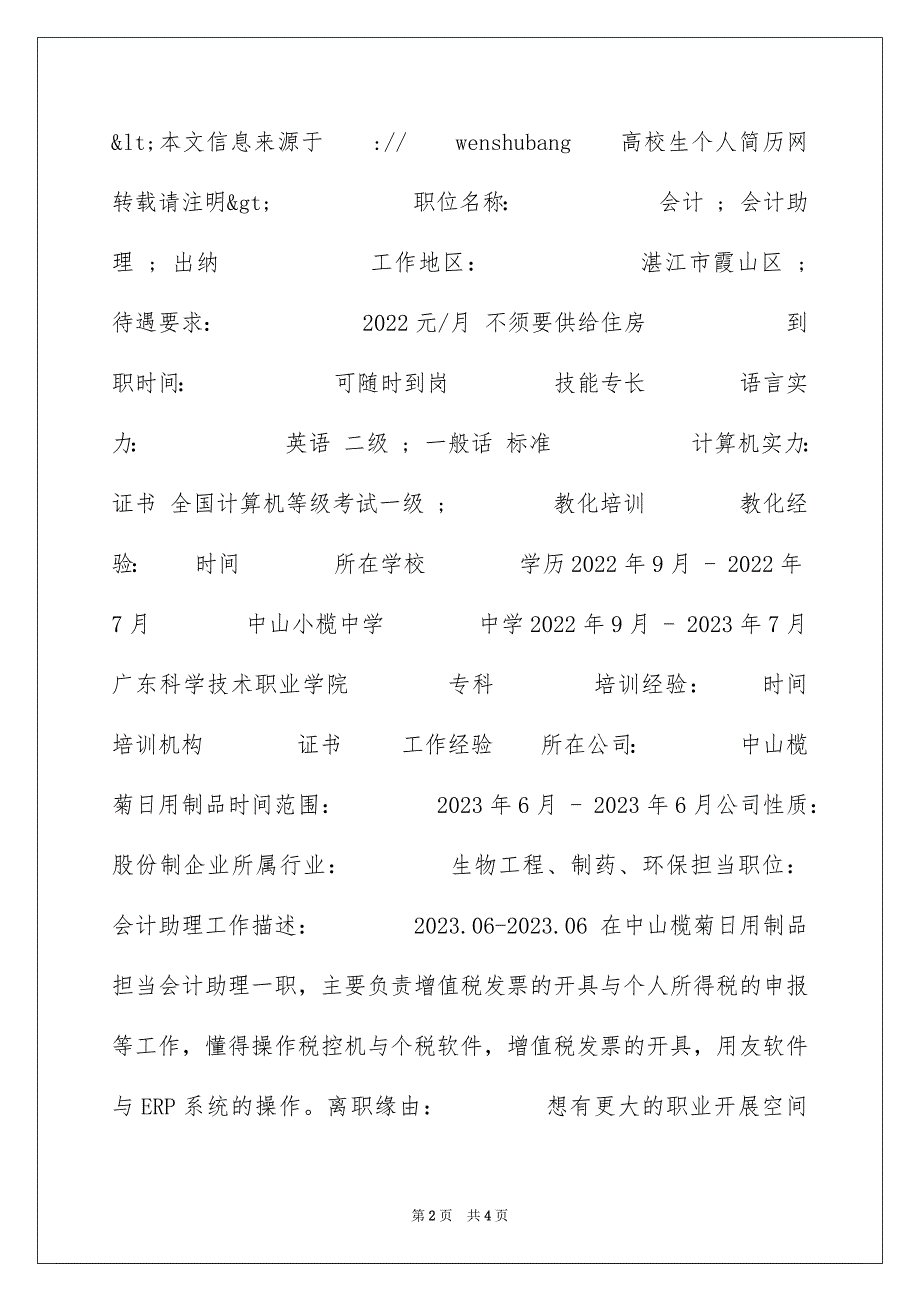 &lt;本文信息来源于 :// wenshubang 高校生个人简历网
转载请注明&gt; 职位名称: 会计 ; 会计助
理 ; 出纳 工作地区: 湛江市霞山区 ;
待遇要求: 2022 元/月 不须要供给住房 到
职时间: 可随时到岗 技能专长 语言实
力: 英语 二级 ; 一般话 标准 计算机实力:
证书 全国计算机等级考试一级 ; 教化培训 教化经
验: 时间 所在学校 学历 2022 年 9 月 - 2022 年
7 月 中山小榄中学 中学 2022 年 9 月 - 2023 年 7 月
广东科学技术职业学院 专科 培训经验: 时间
培训机构 证书 工作经验 所在公司: 中山榄
菊日用制品时间范围: 2023 年 6 月 - 2023 年 6 月公司性质:
股份制企业所属行业: 生物工程、制药、环保担当职位:
会计助理工作描述: 2023.06-2023.06 在中山榄菊日用制品
担当会计助理一职，主要负责增值税发票的开具与个人所得税的申报
等工作，懂得操作税控机与个税软件，增值税发票的开具，用友软件
与 ERP 系统的操作。离职缘由: 想有更大的职业开展空间
第 2 页 共 4 页